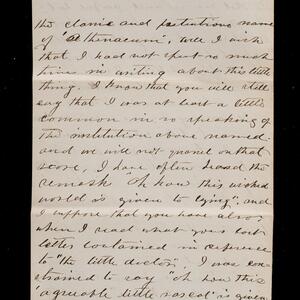 the classic and pretentious name
of "Athenaeum", well I wish
that I had not spent so much
time in writing about this little
thing. I know that you will still
say that I was at least a little
common in so speaking of
the institution above named.
and we will not quarrel on that
score, I have often heard the
remark "Oh how this wicked
world is given to lying" and
I suppose that you have also,
when I read what your last
letter contained in reference
to "the little doctor", I was con-
strained to say "oh how this
agreeable little rascal" is given